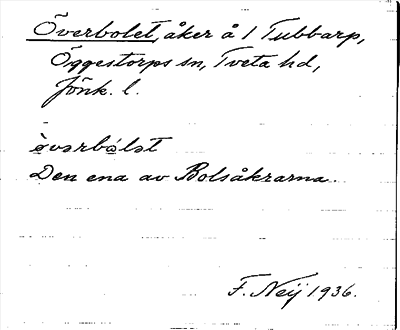 Överbolet, åker å 1 Tubbarp,
Öggestorps sn, Tveta hd,
Jönk. l.
ö̀vərbólət
Den ena av Bolsåkrarna.
F. Neij 1936.